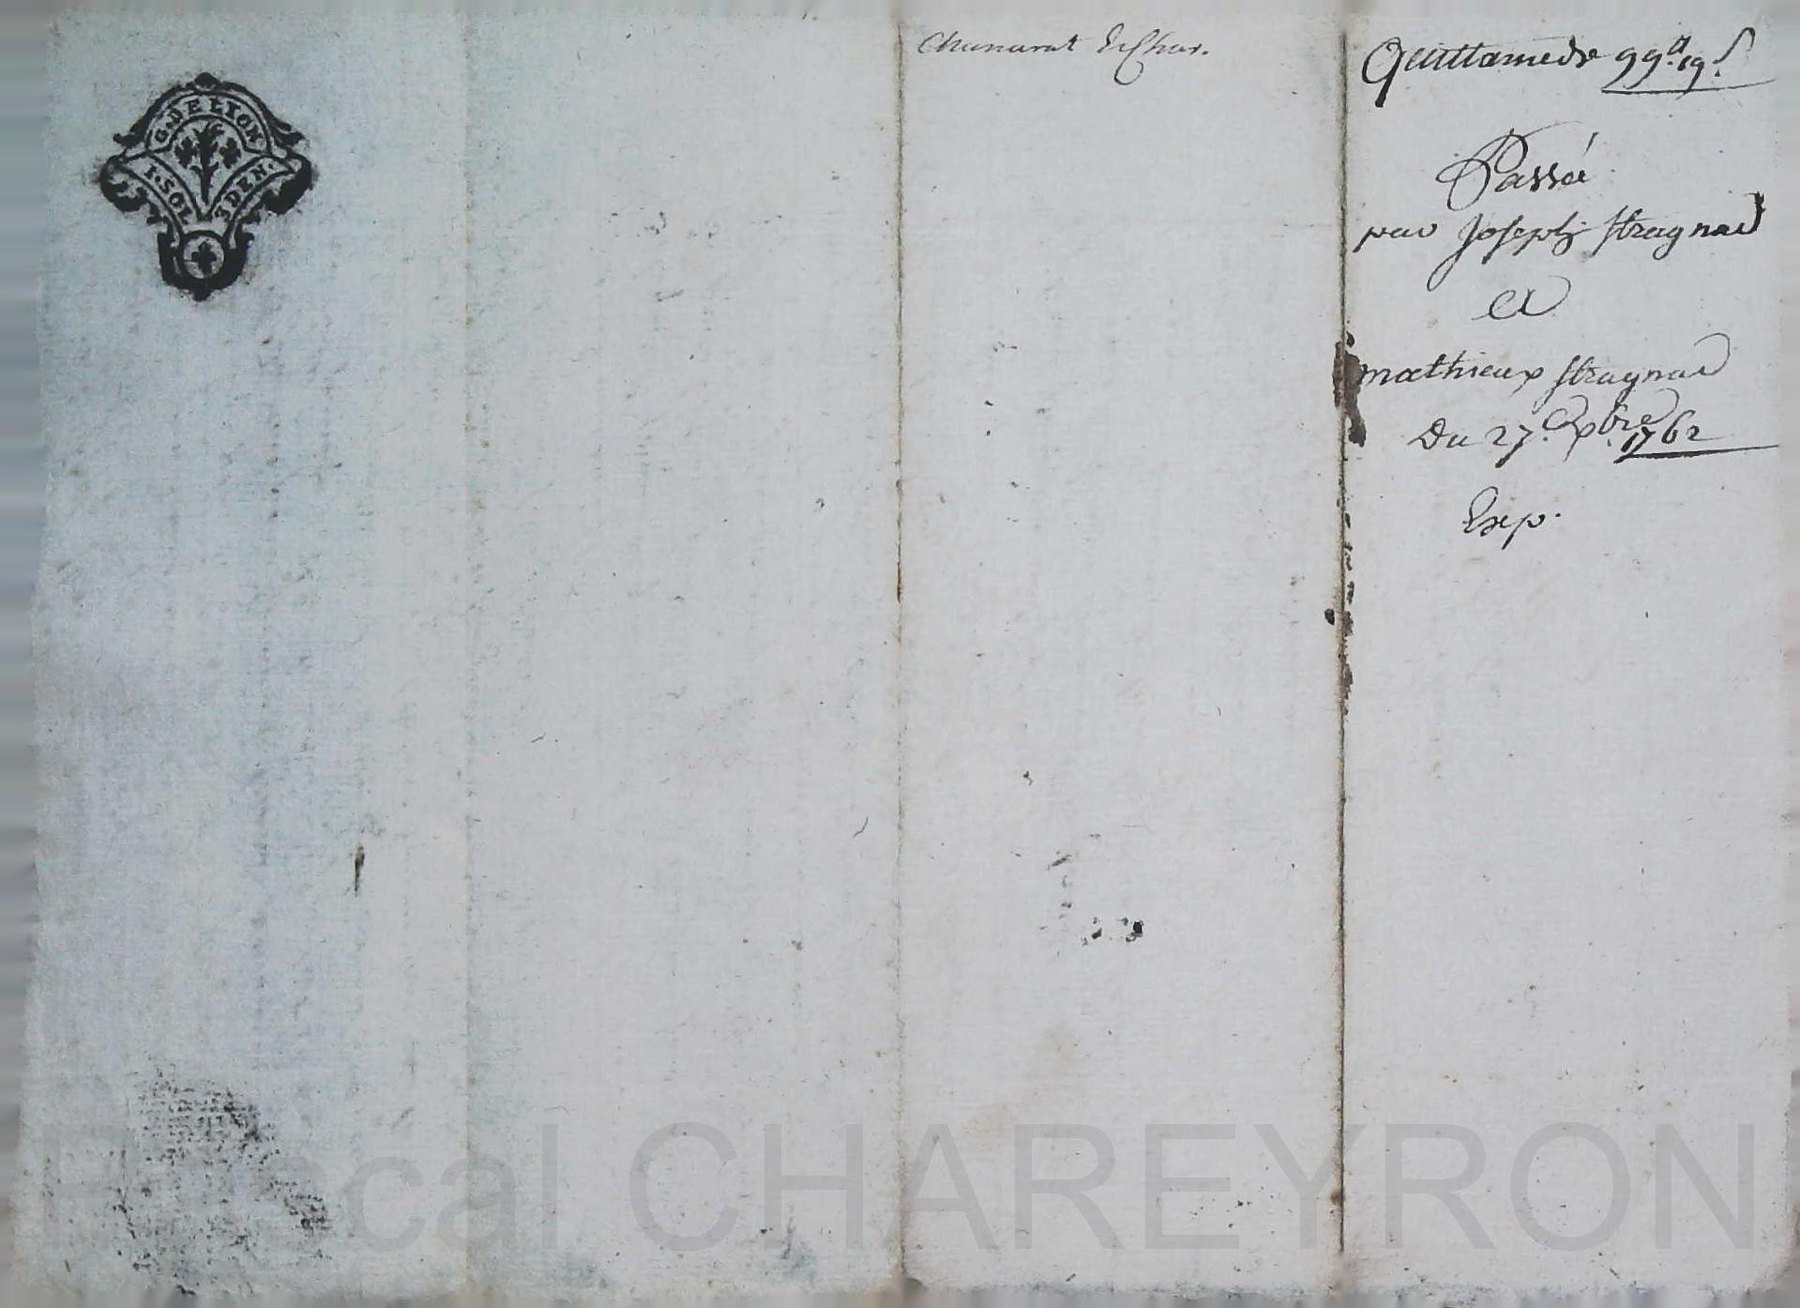 G. DE LYON
1. SOL 3 DEN.
Quittance de 99# 19s
Passée
par Joseph Stragnat
Et
mathieux Stragnat
Du 27. Xbre 1762
Exp.
Pascal CHAREYRON